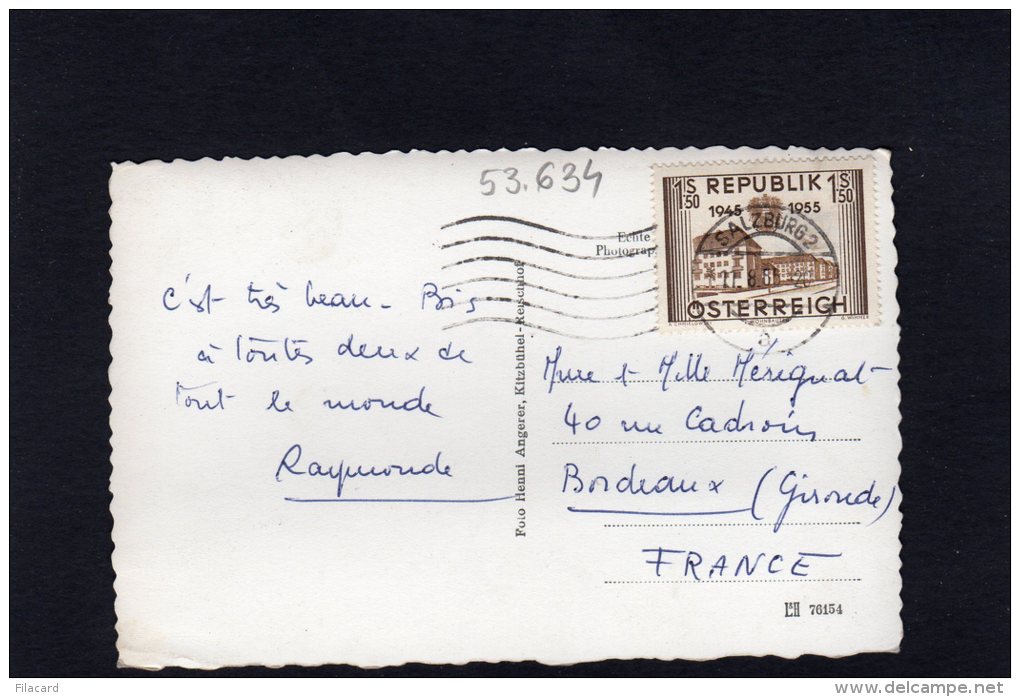 53.634
1S 50 REPUBLIK 1S 50
1945 1955
SALZBURG 2
ÖSTERREICH
Echte
Photograp
c'est très beau - Bois
à toutes deux de
tout le monde
Raymonde
Foto Henni Angerer, Kitzbühel-Reischhof
Mme et Mlle Mérignat
40 rue Cadroin
Bordeaux (Gironde)
FRANCE
76154
Filacard
www.delcampe.net